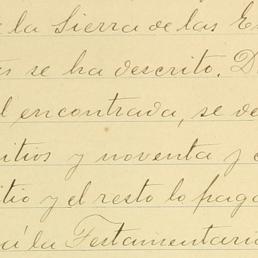 la Sierra de las E
se ha descrito. D
encontrada, se de
itios y noventa y c
itio y el resto lo paga
la Testamentaria